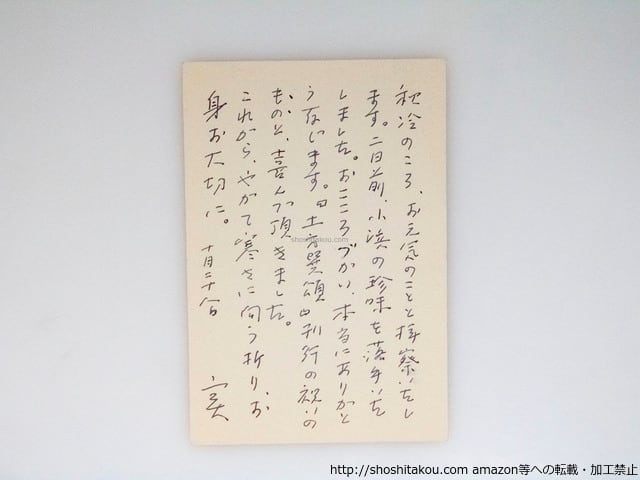 秋冷のころ、お元気のことと拝察いたし
ます。二日前、小浜の珍味を落手いた
しました。おこころづかい、本当にありがと
うございます。『土方巽頌』刊行の祝いの
ものと、喜んで頂きました。
これから、やがて寒さに向う折り、お
身お大切に。 十月二十
shoshitakou.com
http://shoshitakou.com amazon等への転載・加工禁止